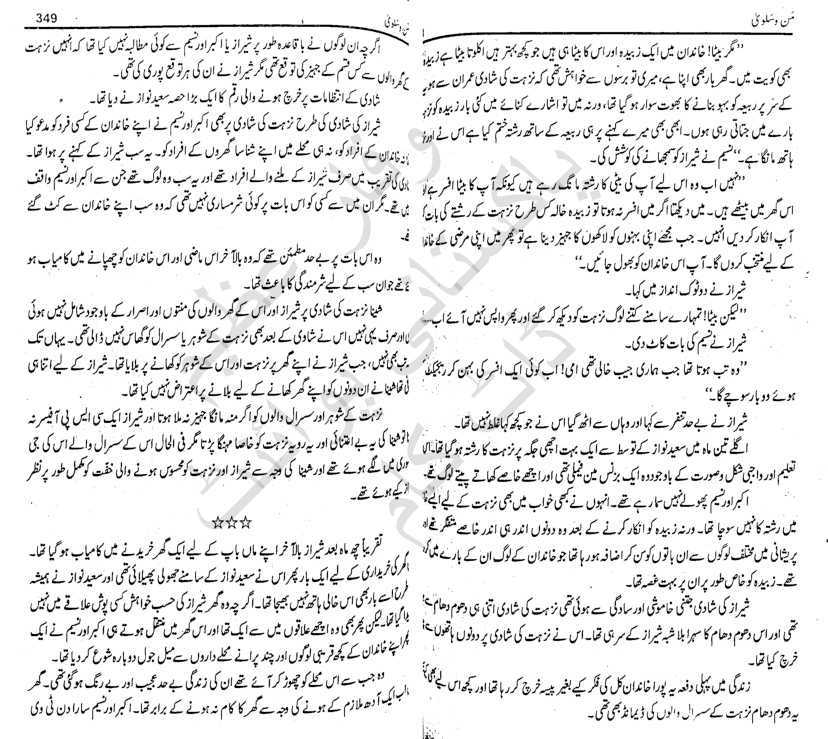 مَن و سلویٰ
”مگر بیٹا! خاندان میں ایک زبیدہ اور اس کا بیٹا ہی ہیں جو کچھ بہتر ہیں اکلوتا بیٹا ہے زبیدہ
بھی کویت میں۔ گھر بار بھی اپنا ہے، میری تو برسوں سے خواہش تھی کہ نزہت کی شادی عمران سے ہو
کے سر پر ربیعہ کو بہو بنانے کا بھوت سوار ہو گیا تھا، ورنہ میں تو اشارے کنائے میں کئی بار زبیدہ کو نزہت
بارے میں جتاتی رہی ہوں۔ ابھی بھی میرے کہنے پر ہی ربیعہ کے ساتھ رشتہ ختم کیا ہے اس نے اور
ہاتھ مانگا ہے۔“ نسیم نے شیراز کو سمجھانے کی کوشش کی۔
”نہیں اب وہ اس لیے آپ کی بیٹی کا رشتہ مانگ رہے ہیں کیونکہ آپ کا بیٹا افسر ہے
اس گھر میں بیٹھے ہیں۔ میں دیکھتا اگر میں افسر نہ ہوتا تو زبیدہ خالہ کس طرح نزہت کے رشتے کی بات
آپ انکار کر دیں انہیں۔ جب مجھے اپنی بہنوں کو لاکھوں کا جہیز دینا ہے تو پھر میں اپنی مرضی کے خاندان
کے لیے منتخب کروں گا۔ آپ اس خاندان کو بھول جائیں۔“
شیراز نے دوٹوک انداز میں کہا۔
”لیکن بیٹا! تمہارے سامنے کتنے لوگ نزہت کو دیکھ کر گئے اور پھر واپس نہیں آئے اب
شیراز نے نسیم کی بات کاٹ دی۔
”وہ تب ہوتا تھا جب ہماری جیب خالی تھی امی! اب کوئی ایک افسر کی بہن کو ریجیکٹ
ہوئے دو بار سوچے گا۔“
شیراز نے بے حد تنفر سے کہا اور وہاں سے اٹھ گیا اس نے جو کچھ کہا غلط نہیں تھا۔
اگلے تین ماہ میں سعید نواز کے توسط سے ایک بہت اچھی جگہ پر نزہت کا رشتہ ہو گیا تھا۔
تعلیم اور واجبی شکل و صورت کے باوجود وہ ایک بزنس مین فیملی تھی اور اچھے خاصے کھاتے پیتے لوگ تھے۔
اکبر اور نسیم پھولے نہیں سما رہے تھے۔ انہوں نے کبھی خواب میں بھی نزہت کے لیے ایسے
میں رشتہ کا نہیں سوچا تھا۔ ورنہ زبیدہ کو انکار کرنے کے بعد وہ دونوں اندر ہی اندر خاصے متفکر تھے اور
پریشانی میں مختلف لوگوں سے ان باتوں کو سن کر اضافہ ہو رہا تھا جو خاندان کے لوگ ان کے بارے میں کر
تھے۔ زبیدہ کو خاص طور پر ان پر بہت غصہ تھا۔
شیراز کی شادی جتنی خاموشی اور سادگی سے ہوئی تھی نزہت کی شادی اتنی ہی دھوم دھام سے
تھی اور اس دھوم دھام کا سہرا بلاشبہ شیراز کے سر ہی تھا۔ اس نے نزہت کی شادی پر دونوں ہاتھوں سے
خرچ کیا تھا۔
زندگی میں پہلی دفعہ یہ پورا خاندان کل کی فکر کیے بغیر پیسہ خرچ کر رہا تھا اور کچھ اس لیے بھی
یہ دھوم دھام نزہت کے سسرال والوں کی ڈیمانڈ بھی تھی۔
مَن و سلویٰ
349
اگرچہ ان لوگوں نے باقاعدہ طور پر شیراز یا اکبر اور نسیم سے کوئی مطالبہ نہیں کیا تھا کہ انہیں نزہت
سے کس قسم کے جہیز کی توقع تھی مگر شیراز نے ان کی ہر توقع پوری کی تھی۔
شادی کے انتظامات پر خرچ ہونے والی رقم کا ایک بڑا حصہ سعید نواز نے دیا تھا۔
شیراز کی شادی کی طرح نزہت کی شادی پر بھی اکبر اور نسیم نے اپنے خاندان کے کسی فرد کو مدعو کیا
نہ خاندان کے افراد کو، نہ ہی محلے میں اپنے شناسا گھروں کے افراد کو۔ یہ سب شیراز کے کہنے پر ہوا تھا۔
کی تقریب میں صرف شیراز کے ملنے والے افراد تھے اور یہ سب وہ لوگ تھے جن سے اکبر اور نسیم واقف
تھے۔ مگر ان میں سے کسی کو اس بات پر کوئی شرمساری نہیں تھی کہ وہ سب اپنے خاندان سے کٹ گئے
وہ اس بات پر بے حد مطمئن تھے کہ وہ بالآخر اس ماضی اور اس خاندان کو چھپانے میں کامیاب ہو
گئے تھے جو ان سب کے لیے شرمندگی کا باعث تھا۔
شینا نزہت کی شادی پر شیراز اور اس کے گھر والوں کی منتوں اور اصرار کے باوجود شامل نہیں ہوئی
اور صرف یہی نہیں اس نے شادی کے بعد بھی نزہت کے شوہر یا سسرال کو گھاس نہیں ڈالی تھی۔ یہاں تک
بھی نہیں، جب شیراز نے اپنے گھر پر نزہت اور اس کے شوہر کو کھانے پر بلایا تھا۔ شیراز کے لیے اتنا ہی
تھا شینا نے ان دونوں کو اپنے گھر کھانے کے لیے بلانے پر اعتراض نہیں کیا تھا۔
نزہت کے شوہر اور سسرال والوں کو اگر منہ مانگا جہیز نہ ملا ہوتا اور شیراز ایک سی ایس پی آفیسر نہ
ہوتا تو شینا کی یہ بے اعتنائی اور یہ رویہ نزہت کو خاصا مہنگا پڑتا مگر فی الحال اس کے سسرال والے اس کی جی
میں لگے ہوئے تھے اور شینا کی وجہ سے شیراز اور نزہت کو محسوس ہونے والی خفت کو مکمل طور پر نظر
کیے ہوئے تھے۔
☆☆☆
تقریباً چھ ماہ بعد شیراز بالآخر اپنے ماں باپ کے لیے ایک گھر خریدنے میں کامیاب ہو گیا تھا۔
گھر کی خریداری کے لیے ایک بار پھر اس نے سعید نواز کے سامنے جھولی پھیلائی تھی اور سعید نواز نے ہمیشہ
طرح اسے بار بھی اس خالی ہاتھ نہیں بھیجا تھا۔ اگرچہ وہ گھر شیراز کی حسب خواہش کسی پوش علاقے میں نہیں
گیا تھا۔ لیکن پھر بھی وہ اچھے علاقوں میں سے ایک تھا اور اس گھر میں منتقل ہوتے ہی اکبر اور نسیم نے ایک
پھر اپنے خاندان کے کچھ قریبی لوگوں اور چند پرانے محلے داروں سے میل جول دوبارہ شروع کر دیا تھا۔
وہ جب سے اس محلے کو چھوڑ کر آئے تھے ان کی زندگی بے حد عجیب اور بے رنگ ہو گئی تھی۔ گھر
اب ایک آدھ ملازم کے ہونے کی وجہ سے گھر کا کام نہ ہونے کے برابر تھا۔ اکبر اور نسیم سارا دن ٹی وی